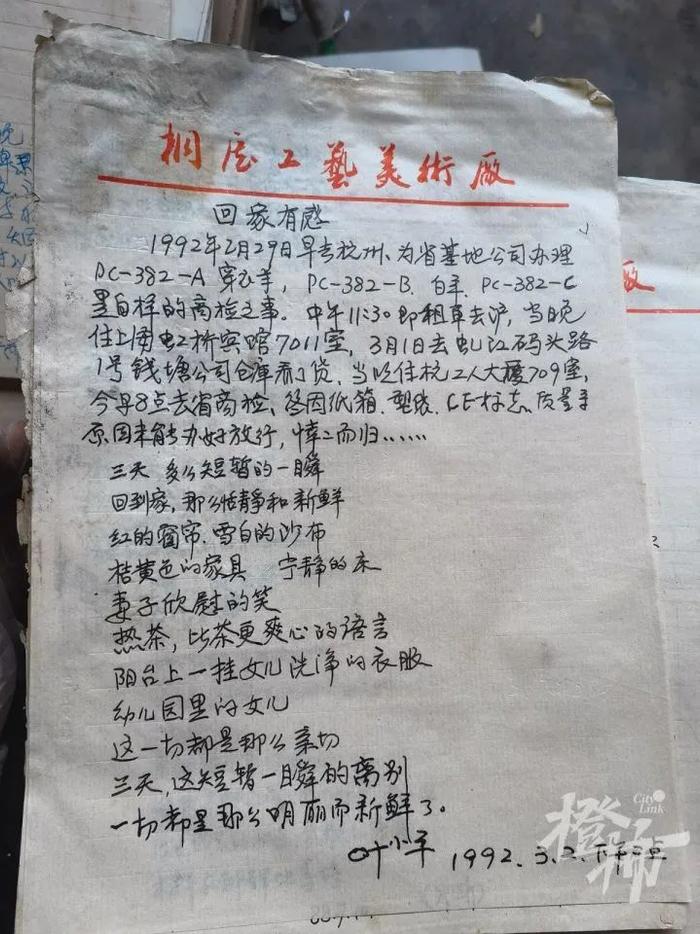 桐庐工藝美術廠
回家有感
1992年2月29日早去杭州、为省基地公司办理
PC-382-A 穿衣羊, PC-382-B. 白羊. PC-382-C
黑白样的商检之事。中午11:30即租车去沪,当晚
住上海虹桥宾馆7011室, 3月1日去虬江码头路
1号钱塘公司仓库看了货. 当晚住杭工人大厦709室,
今早8点去省商检、终因纸箱. 型袋. CE标志、质量等
原因未能办好放行, 悻二而归……
三天 多么短暂的一瞬
回到家, 那么恬静和新鲜
红的窗帘. 雪白的沙布
桔黄色的家具 宁静的床
妻子欣慰的笑
热茶, 比茶更爽心的语言
阳台上一挂女儿洗净的衣服
幼儿园里的女儿
这一切都是那么亲切
三天, 这短暂一瞬的离别
一切都是那么明丽而新鲜了。
叶小平 1992. 3. 2. 下午
橙柿
City Link
廠